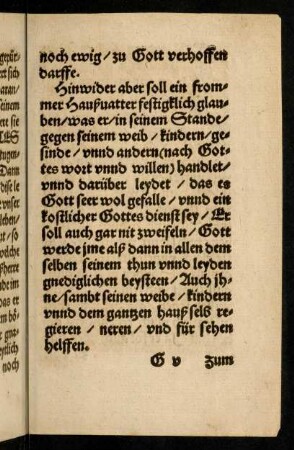 noch ewig / zu Gott verhoffen
darffe.
Hinwider aber soll ein from-
mer Haußuatter festigklich glau-
ben / was er / in seinem Stande /
gegen seinem weib / kindern / ge-
sinde / vnnd andern (nach Got-
tes wort vnnd willen) handlet /
vnnd darüber leydet / das es
Gott seer wol gefalle / vnnd ein
kostlicher Gottes dienst sey / Er
soll auch gar nit zweifeln / Gott
werde jme alß dann in allen dem
selben seinem thun vnnd leyden
gnediglichen beysteen / Auch jh-
ne / sambt seinen weibe / kindern
vnnd dem gantzen hauß sels re-
gieren / neren / vnd für sehen
helffen.
G v zum